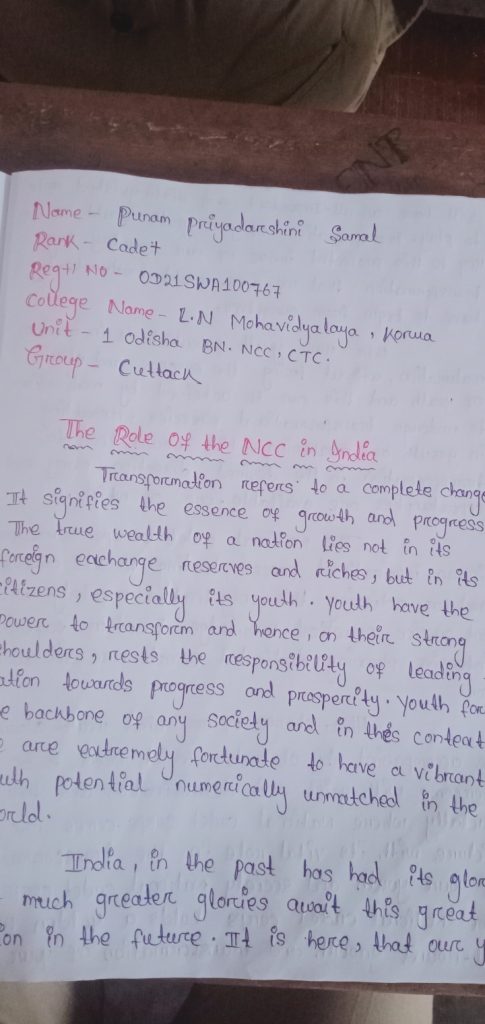 CNT
Name - Punam Priyadarshini Samal
Rank - Cadet
Regtl No - OD21SWA100767
College Name - L.N Mohavidyalaya, Korua
Unit - 1 Odisha BN. NCC, CTC.
Group - Cuttack
The Role Of the NCC in India
Transformation refers to a complete change
It signifies the essence of growth and progress
The true wealth of a nation lies not in its
foreign exchange reserves and riches, but in its
citizens, especially its youth. Youth have the
power to transform and hence, on their strong
houlders, rests the responsibility of leading
ation towards progress and prosperity. Youth for
e backbone of any society and in this context
e are extremely fortunate to have a vibrant
uth potential numerically unmatched in the
orld.
India, in the past has had its glor
much greater glories await this great
ion in the future. It is here, that our y